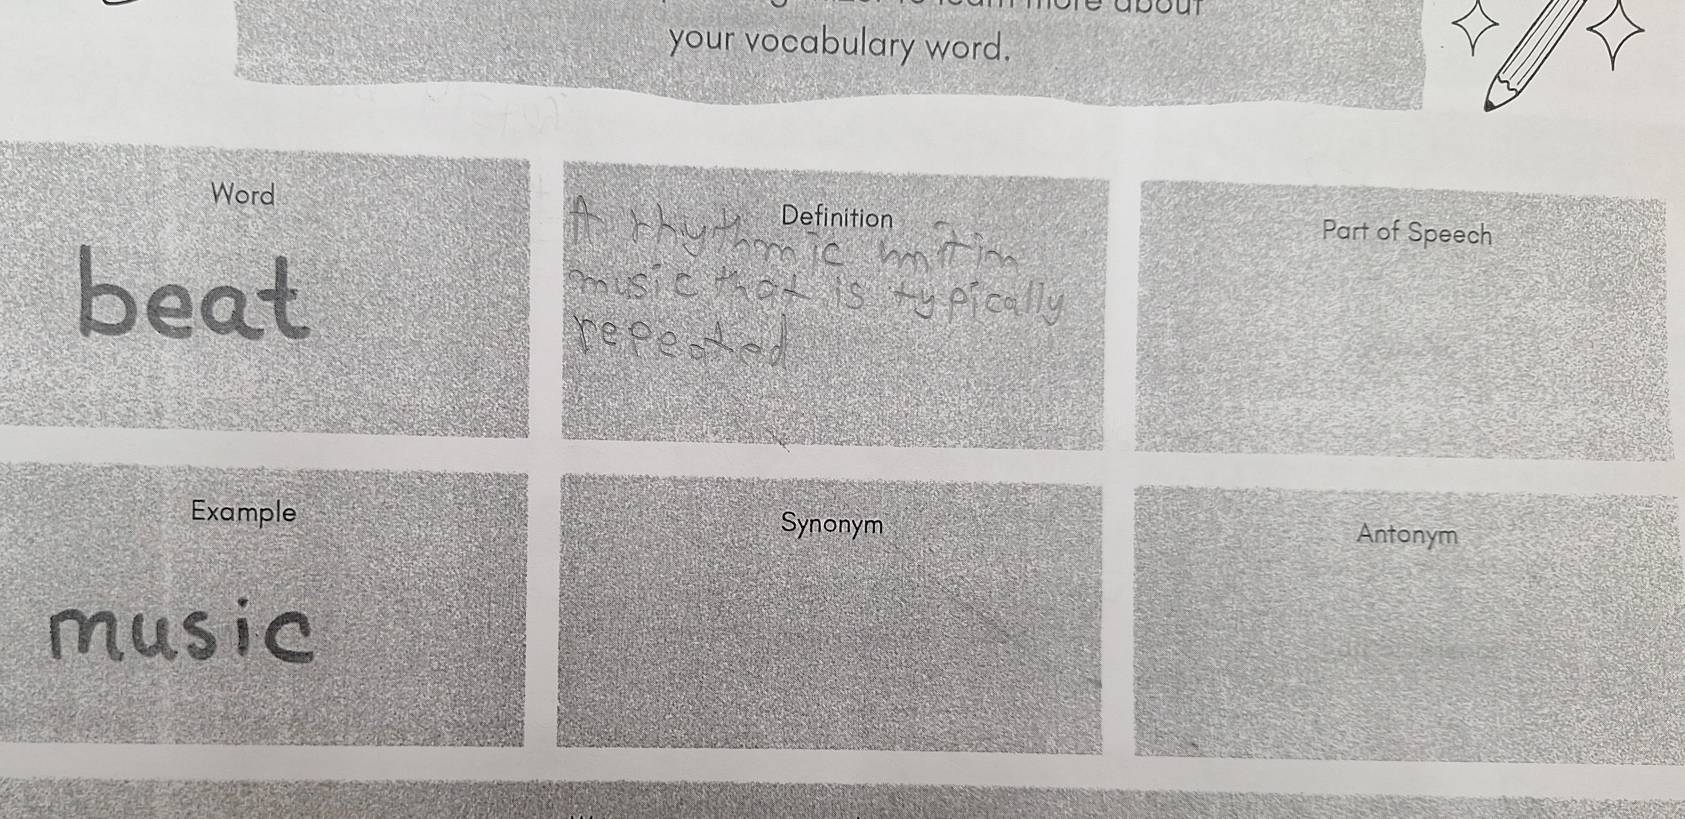 your vocabulary word.
Word
beat
Definition
A rhythmic unit in
music that is typically
repeated
Part of Speech
Example
music
Synonym
Antonym